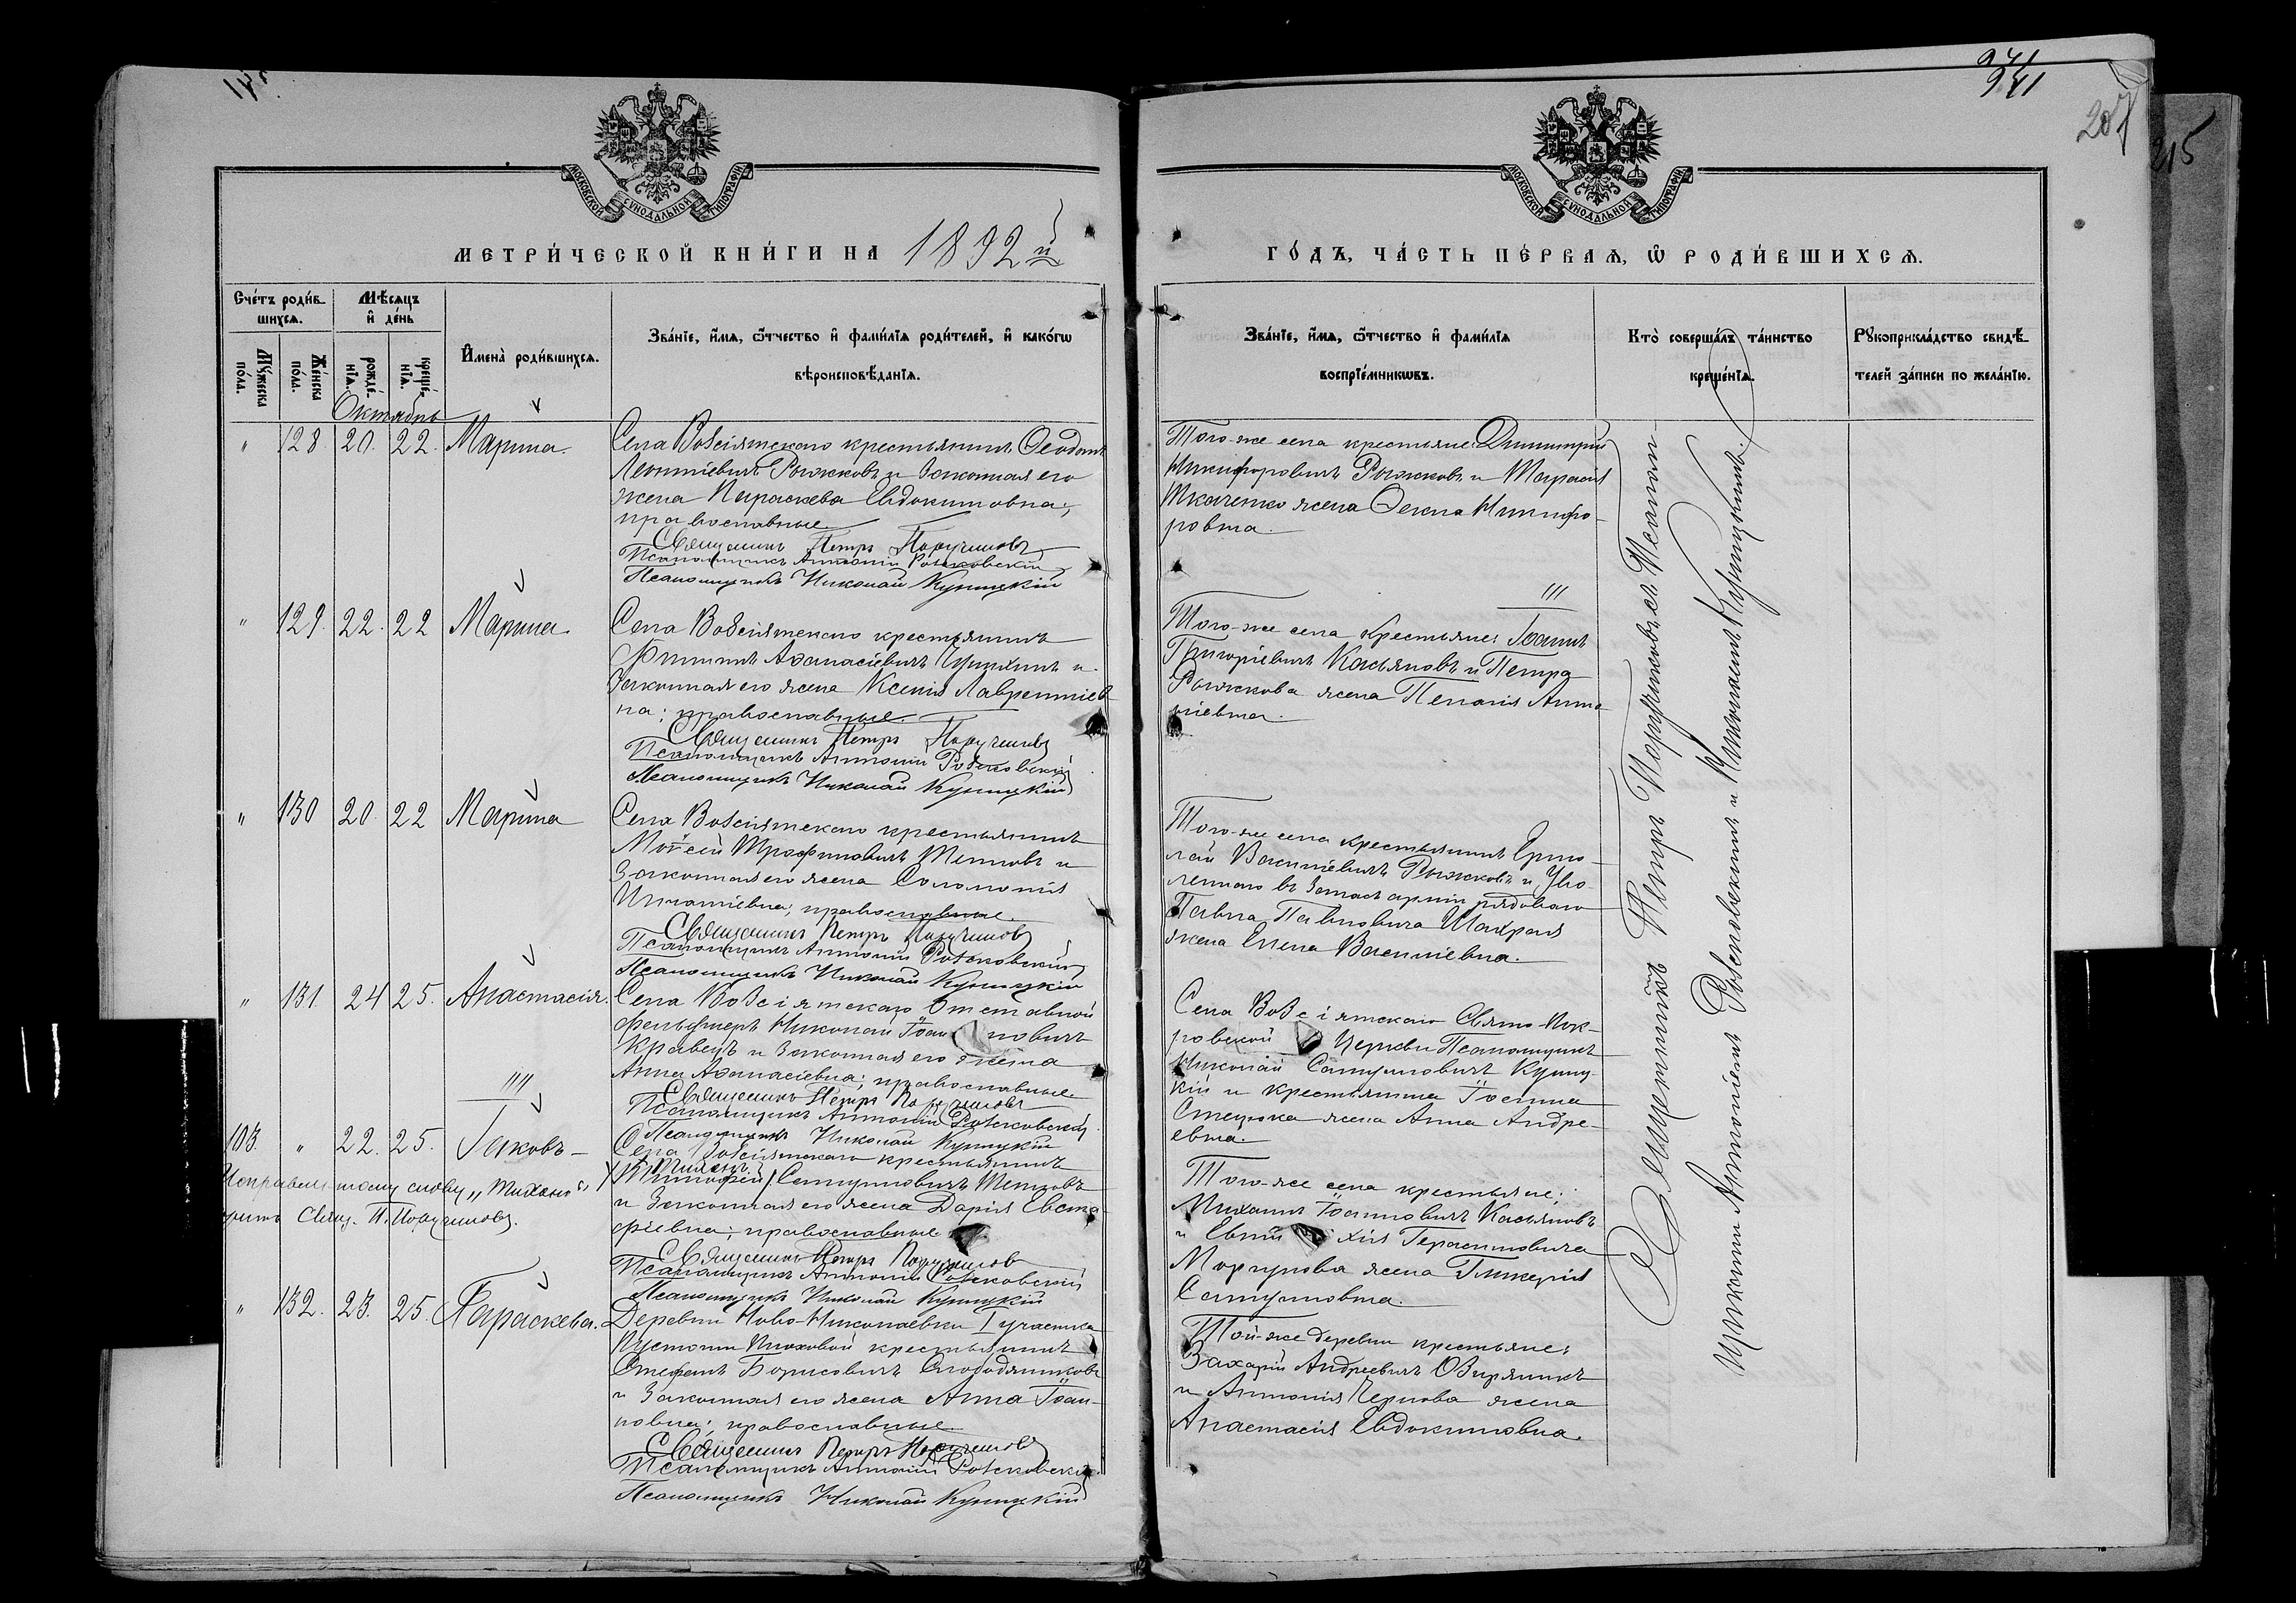 941
941
207
215
МОСКОВСКОЙ СѴНОДАЛЬНОЙ ТИПОГРАФІИ
МОСКОВСКОЙ СѴНОДАЛЬНОЙ ТИПОГРАФІИ
МЕТРИ́ЧЕСКОЙ КНИ́ГИ НА 1892й
ГО́ДЪ, ЧА́СТЬ ПЕ́РВАѦ, Ѽ РОДИ́ВШИХСѦ.
Сче́тъ роди́вшихсѧ.
Мѣ́сѧцъ и҆ де́нь
Мꙋ́жеска по́ла.
Же́нска по́ла.
рожде́нїѧ.
креще́нїѧ.
И҆мена̀ роди́вшихсѧ.
Зва́нїе, и҆́мѧ, ѻ҆́тчество и҆ фами́лїѧ роди́телей, и҆ како́гѡ
вѣроисповѣ́данїѧ.
Зва́нїе, и҆́мѧ, ѻ҆́тчество и҆ фами́лїѧ
воспрїе́мникѡвъ.
Кто̀ соверша́лъ та́инство
креще́нїѧ.
Рꙋкоприкла́дство свидѣ́
телей за́писи по жела́нїю.
Октябрь
" 128. 20. 22. Марина.
Села Возсіятскаго крестьянинъ Ѳеодотъ
Леонтіевичъ Рыжковъ и законная его
жена Параскева Евдокимовна;
православные.
Священникъ Петръ Поручиковъ
Псаломщикъ Антоній Роксковскій
Псаломщикъ Николай Куницкій
Того-же села крестьяне: Димитрій
Никифоровичъ Рыжковъ и Тарасія
Ткаченко жена Ѳекла Никифо-
ровна.
" 129. 22. 22 Марина.
Села Возсіятскаго крестьянинъ
Филиппъ Аѳанасіевичъ и
законная его жена Ксенія Лаврентіев
на; православные.
Священникъ Петръ Поручиковъ
Псаломщикъ Антоній Роксковскій
Псаломщикъ Николай Куницкій
III
Того-же села крестьяне: Іоаннъ
Григоріевичъ Касьяновъ и Петра
Рыжкова жена Пелагія
" 130 20. 22 Марина
Села Возсіятскаго крестьянинъ
Моѵсей Трофимовичъ Тетковъ и
законная его жена Соломонія
Игнатіевна; православные.
Священникъ Петръ Поручиковъ
Псаломщикъ Антоній Роксковскій
Псаломщикъ Николай Куницкій
Того-же села крестьянинъ Ермо-
лай Василіевичъ Рыжковъ и Уво-
леннаго въ запасъ арміи рядоваго
Павла Павловича Шахрая
жена Елена Василіевна.
" 131. 24 25. Анастасія.
Села Возсіятскаго Отставной
фельдшеръ Николай Іоанновичъ
Кравецъ и законная его жена
Анна Аѳанасіевна; православные.
Священникъ Петръ Поручиковъ
Псаломщикъ Антоній Роксковскій
Псаломщикъ Николай Куницкій
Села Возсіятскаго Свято-Пок-
ровской Церкви Псаломщикъ
Николай Самуиловичъ Куниц-
кій и крестьянина Іоанна
Стецюка жена Анна Андре-
евна.
IIII
103. " 22. 25. Іаковъ –
Села Возсіятскаго крестьянинъ
Тимоѳей/ Самуиловичъ Тетковъ
и законная его жена Дарія Евста
фіевна; православные.
Священникъ Петръ Поручиковъ
Псаломщикъ Антоній Роксковскій
Псаломщикъ Николай Куницкій
свящ. П. Поручиковъ.
Того-же села крестьяне:
Михаилъ Іоанновичъ Касьяновъ
и Евтихія Герасимовича
Моргунова жена Гликерія
Самуиловна.
" 132. 23. 25. Параскева.
Деревни Ново-Николаевки I участка
крестьянинъ
Стефанъ Борисовичъ Слободянюковъ
и законная его жена Анна Іоан-
новна; православные
Священникъ Петръ Поручиковъ
Псаломщикъ Антоній Роксковскій
Псаломщикъ Николай Куницкій
Той-же деревни крестьяне:
Захарій Андреевичъ Озирянинъ
и Антонія Чернова жена
Анастасія Евдокимовна.
Священникъ Петръ Поручиковъ съ Псалом-
щиками Антоніемъ Роксковскимъ и Николаемъ Куницкимъ.